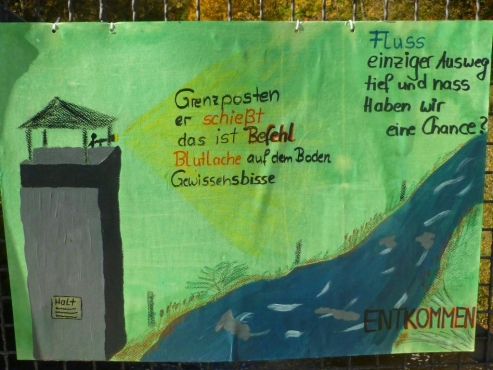 Grenzposten
er schießt
das ist Befehl
Blutlache auf dem Boden
Gewissensbisse
Fluss
einziger Ausweg
tief und nass
Haben wir
eine Chance?
Halt
ENTKOMMEN